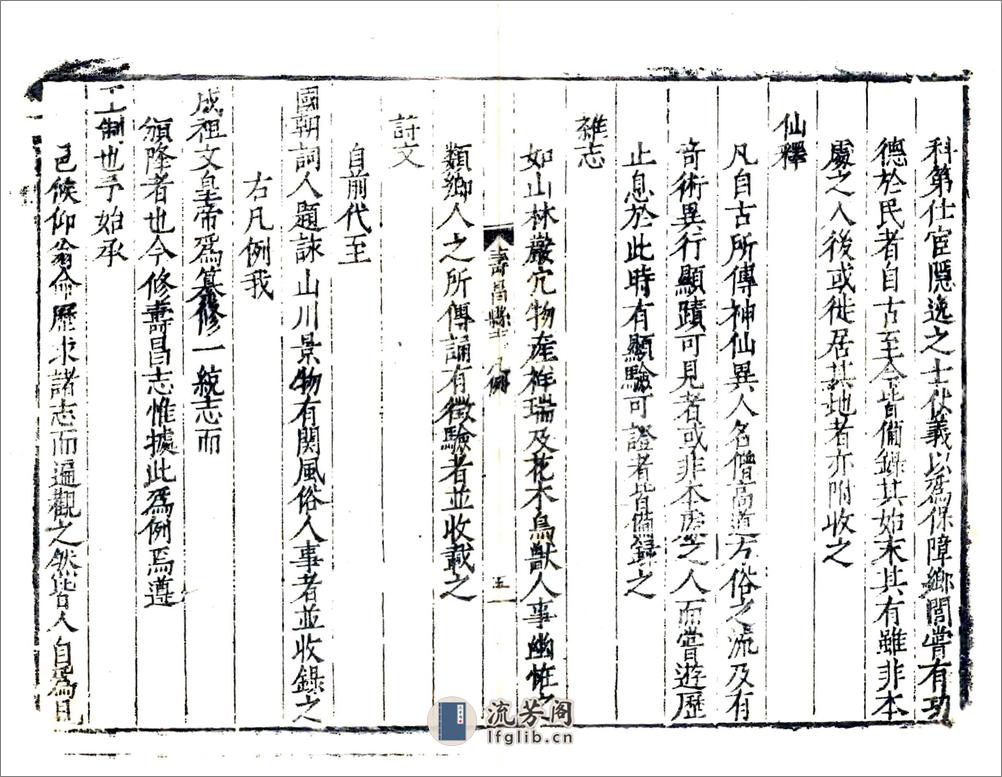 科第仕宦隱逸之士仗義以爲保障鄉閭嘗有功
德於民者自古至今皆備錄其如末其有雖非本
處之人後或徙居其地者亦附收之
仙釋
凡自古所傳神仙異人名僧高道方俗之流及有
奇術異行顯蹟可見者或非本處之人而嘗遊歷
止息於此時有顯驗可證者皆備錄之
雜志
如山林巖穴物產祥瑞及花木鳥獸人事幽怪之
壽昌縣 凡例 五
類鄉人之所傳誦有徵驗者並收載之
詩文
自前代至
國朝詞人題詠山川景物有関風俗人事者並收錄之
右凡例我
成祖文皇帝爲纂修一統志而
頒降者也今修壽昌志惟據此爲例焉遵
王制也予始承
邑候仰翁命歷求諸志而遍觀之然皆人自爲
流芳阁
lfglib.cn